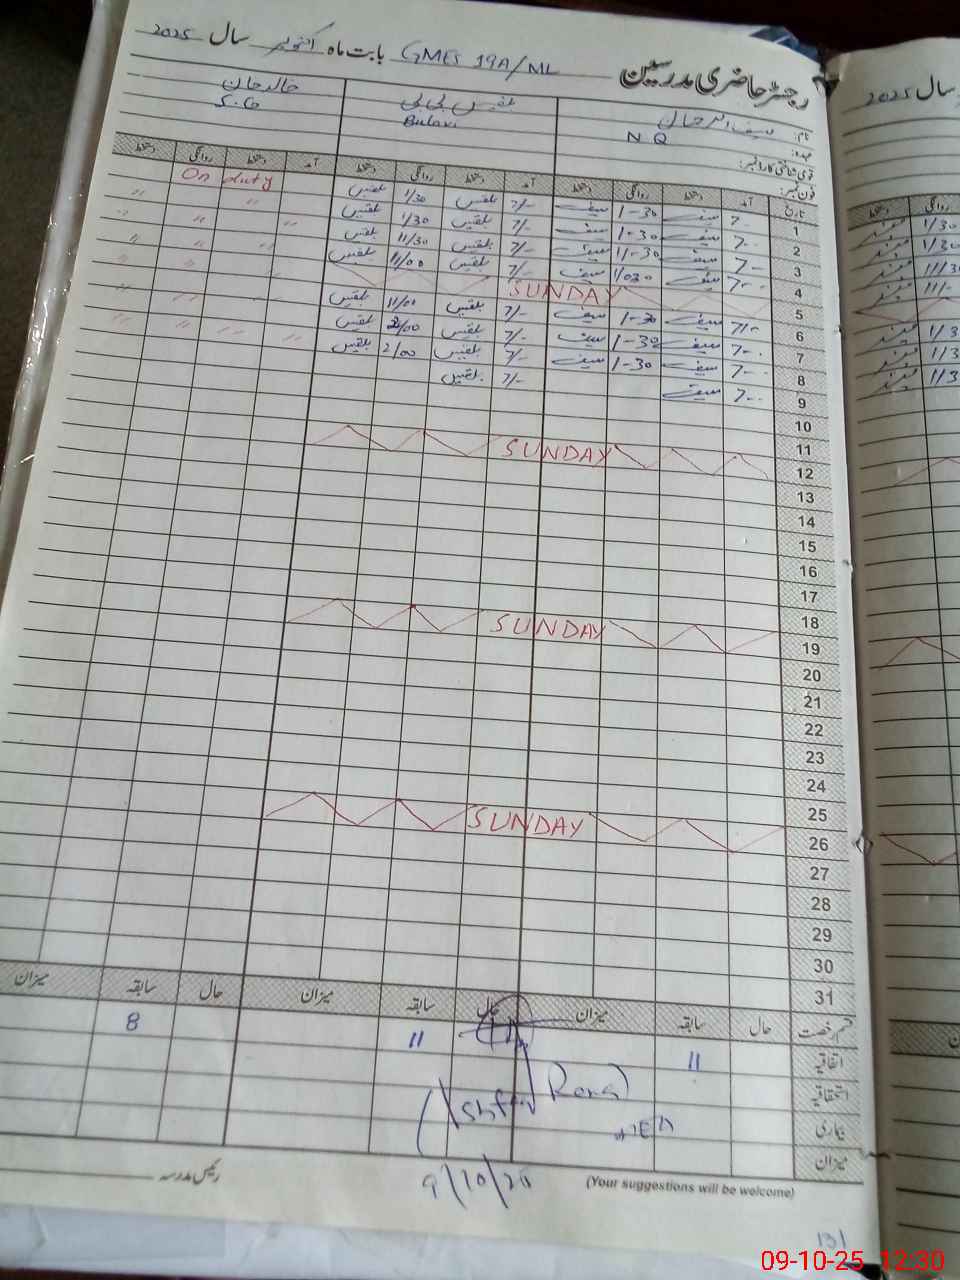 رجسٹر حاضری مدرسین GMES 19A/ML بابت ماہ اکتوبر سال 2025
نام: سیف الرحمان بلقیس بی بی خالد جان
عہدہ: N Q Bulavi
قومی شناختی کارڈ نمبر:
فون نمبر:
تاریخ آمد دستخط روانگی دستخط آمد دستخط روانگی دستخط آمد دستخط روانگی دستخط
1 7-- سیف 1-30 سیف 7/- بلقیس 1/30 بلقیس On duty
2 7-- سیف 1-30 سیف 7/- بلقیس 1/30 بلقیس " "
3 7-- سیف 1-30 سیف 7/- بلقیس 11/30 بلقیس " "
4 7-- سیف 1030 سیف 7/- بلقیس 11/00 بلقیس " "
5 SUNDAY
6 7/- سیف 1-30 سیف 7/- بلقیس 11/00 بلقیس " "
7 7-- سیف 1-30 سیف 7/- بلقیس 2/00 بلقیس " "
8 7-- سیف 1-30 سیف 7/- بلقیس 2/00 بلقیس " "
9 7-- سیف 7/- بلقیس
10
11
12 SUNDAY
13
14
15
16
17
18
19 SUNDAY
20
21
22
23
24
25
26 SUNDAY
27
28
29
30
31
قسم رخصت حال سابقہ میزان حال سابقہ میزان حال سابقہ میزان
اتفاقیہ 11 11 8
استحقاقیہ
بیماری
میزان
9/10/25
رئیس مدرسہ
(Your suggestions will be welcome)
131
سال 2025
روانگی دستخط
1/30
1/30
11/30
11/-
1/3
1/3
11/3
09-10-25 12:30